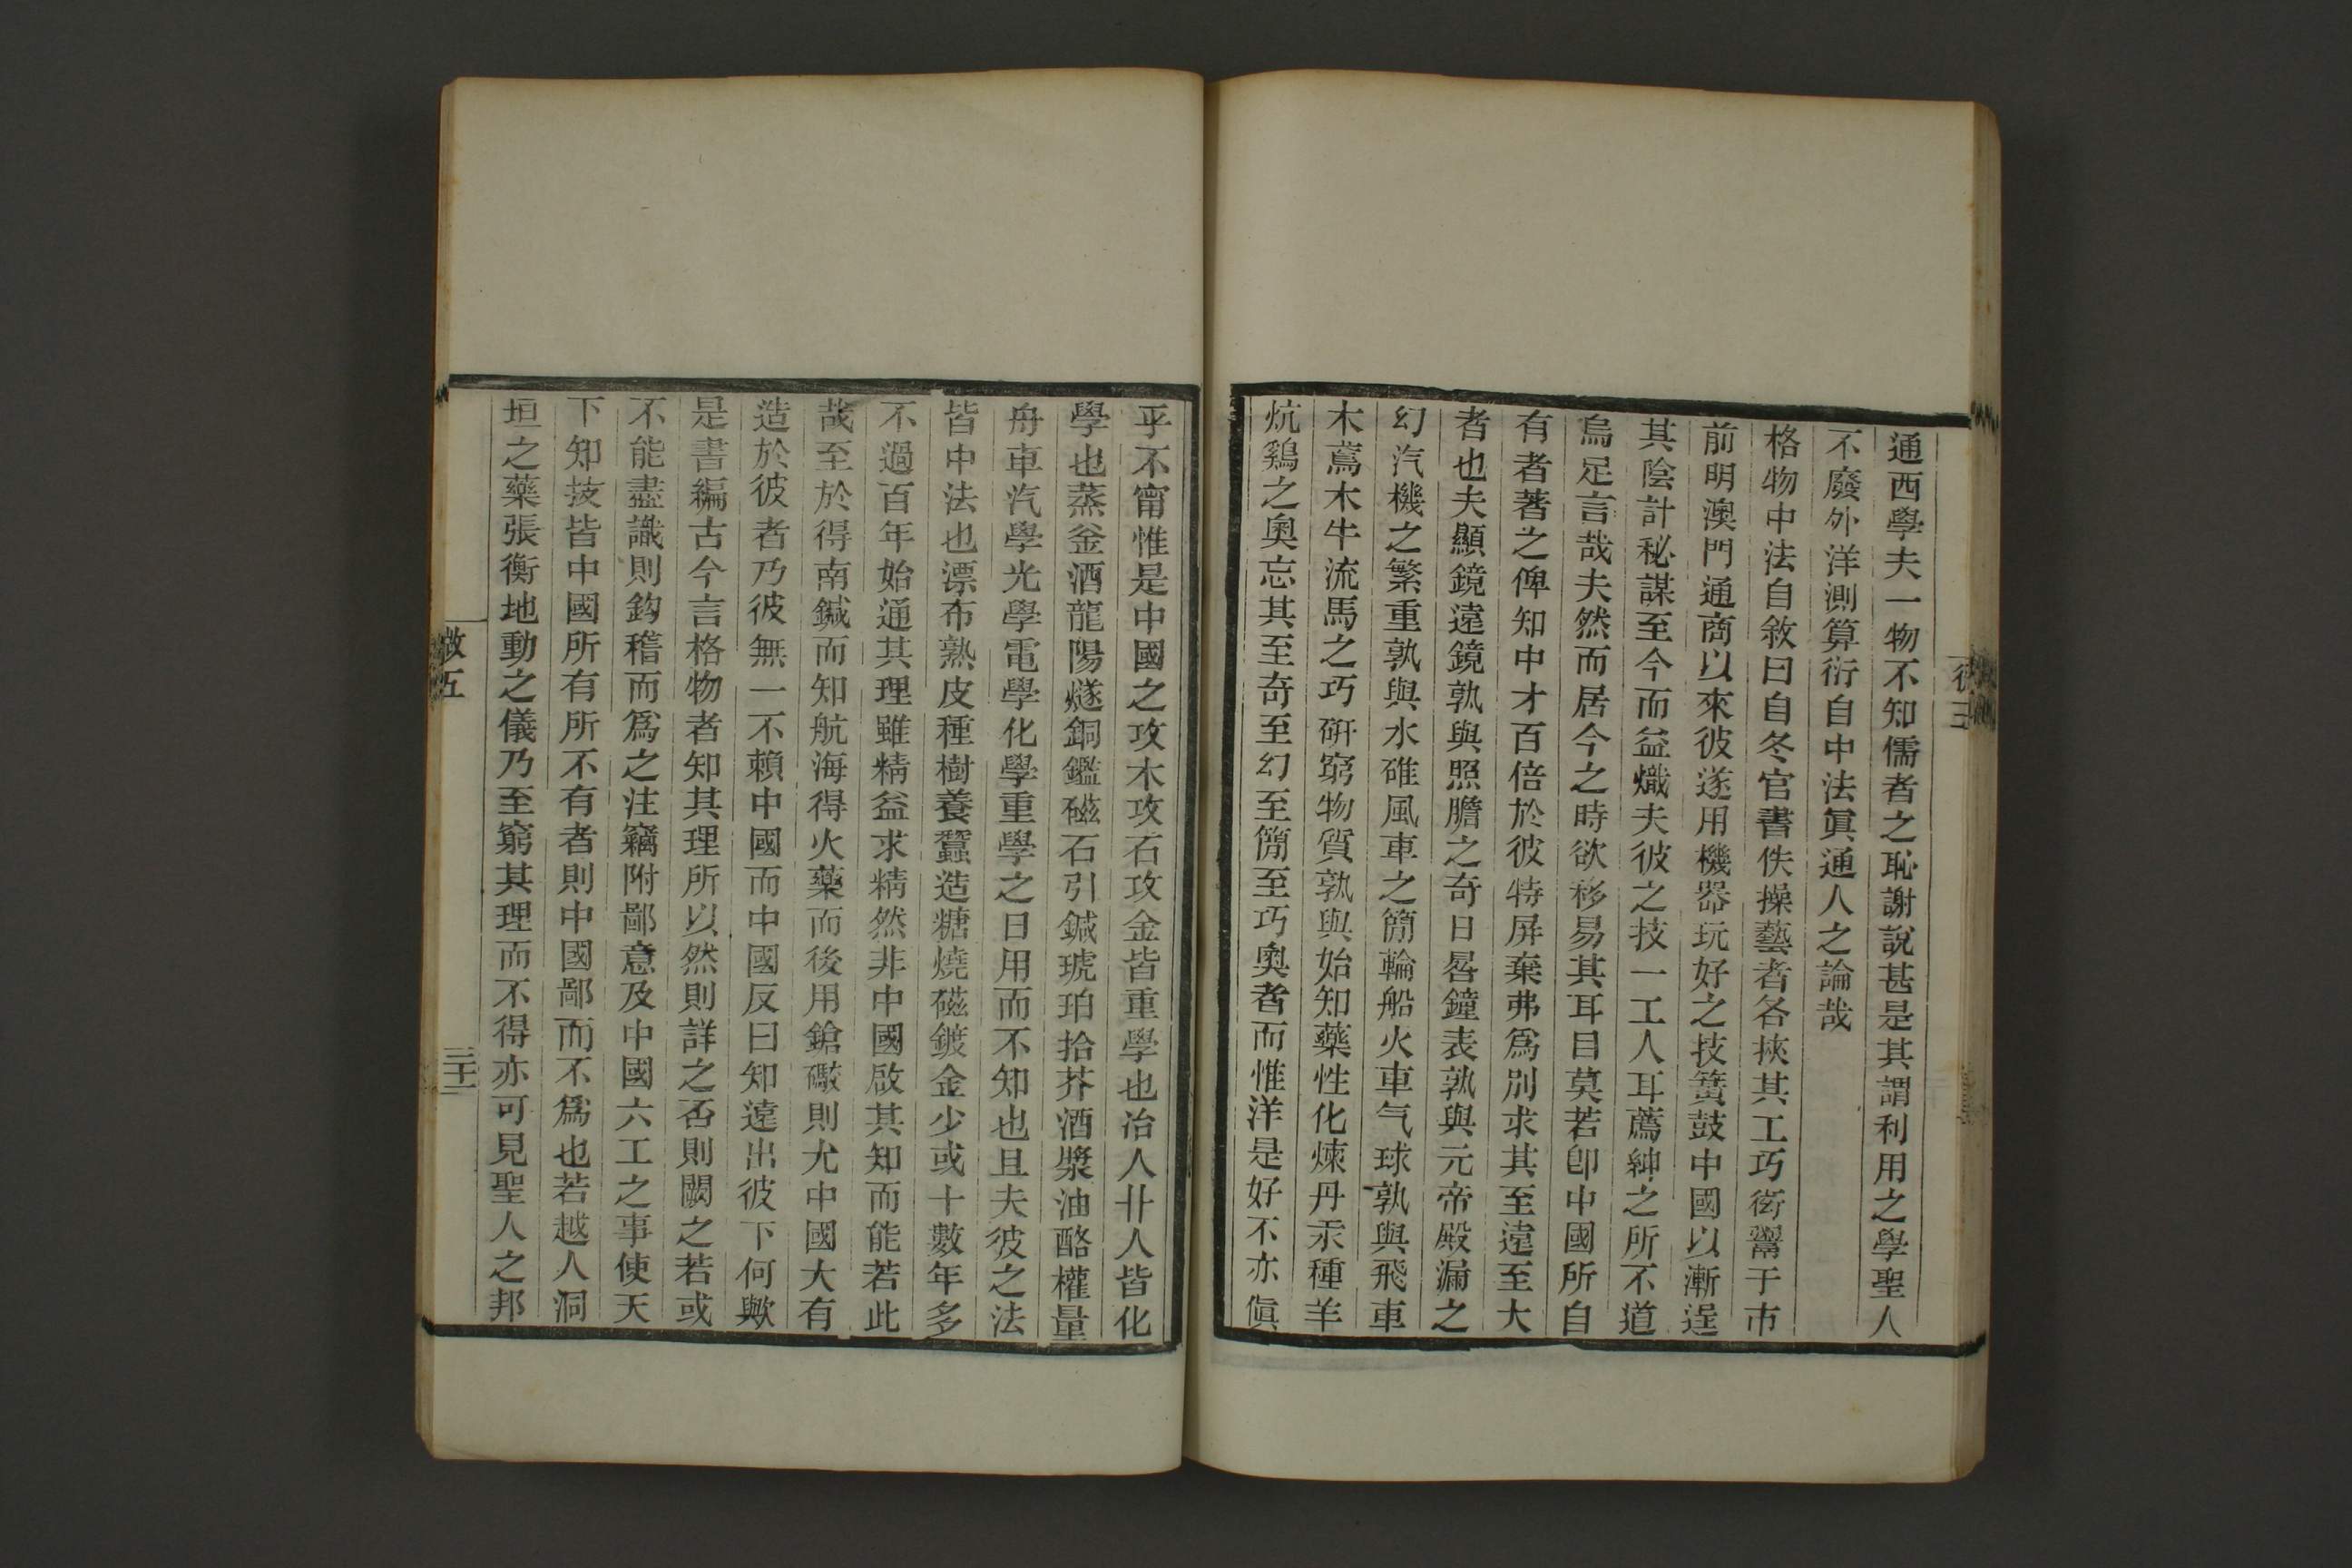 通西學夫一物不知儒者之恥謝說甚是其謂利用之學聖人
不廢外洋測算衍自中法眞通人之論哉
格物中法自敘曰自冬官書佚操藝者各挾其工巧衒鬻于市
前明澳門通商以來彼遂用機器玩好之技簧鼓中國以漸逞
其陰計秘謀至今而益熾夫彼之技一工人耳薦紳之所不道
烏足言哉夫然而居今之時欲移易其耳目莫若卽中國所自
有者著之俾知中才百倍於彼特屏棄弗爲別求其至遠至大
者也夫顯鏡遠鏡孰與照膽之奇日晷鐘表孰與元帝殿漏之
幻汽機之繁重孰與水碓風車之簡輪船火車气球孰與飛車
木鳶木牛流馬之巧硏窮物質孰與始知藥性化煉丹汞種羊
炕鷄之奧忘其至奇至幻至簡至巧奧者而惟洋是好不亦傎
乎不甯惟是中國之攻木攻石攻金皆重學也冶人卝人皆化
學也蒸釜酒龍陽燧銅鑑磁石引鍼琥珀拾芥酒漿油酪權量
舟車汽學光學電學化學重學之日用而不知也且夫彼之法
皆中法也漂布熟皮種樹養蠶造糖燒磁鍍金少或十數年多
不過百年始通其理雖精益求精然非中國啟其知而能若此
哉至於得南鍼而知航海得火藥而後用鎗礮則尤中國大有
造於彼者乃彼無一不賴中國而中國反曰知遠出彼下何歟
是書編古今言格物者知其理所以然則詳之否則闕之若或
不能盡識則鈎稽而爲之注竊附鄙意及中國六工之事使天
下知技皆中國所有所不有者則中國鄙而不爲也若越人洞
垣之藥張衡地動之儀乃至窮其理而不得亦可見聖人之邦
敘五